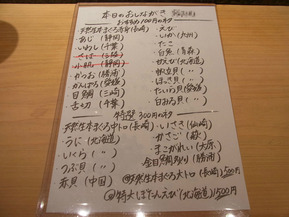 本日のおしながき
おすすめ100円のネタ
・天然生本まぐろ赤身(長崎)
・えび
・あじ(静岡)
・いか(大分)
・いわし(千葉)
・たこ
・さば
・白魚(青森)
・小肌(静岡)
・甘えび(北海道)
・かつお(勝浦)
・帆立貝
・かんぱち(愛媛)
・ほっき貝
・目鯛(三崎)
・たいわり(愛媛)
・舌切(千葉)
特選300円のネタ
・天然生本まぐろ中トロ(長崎)
・いさき
・うに(北海道)
・かさご
・いくら
・まこがれい(大原)
・つぶ貝
・金目鯛あぶり(勝浦)
・赤貝(中国)
天然生本まぐろ大トロ(長崎)500円
特大ぼたんえび(北海道)500円